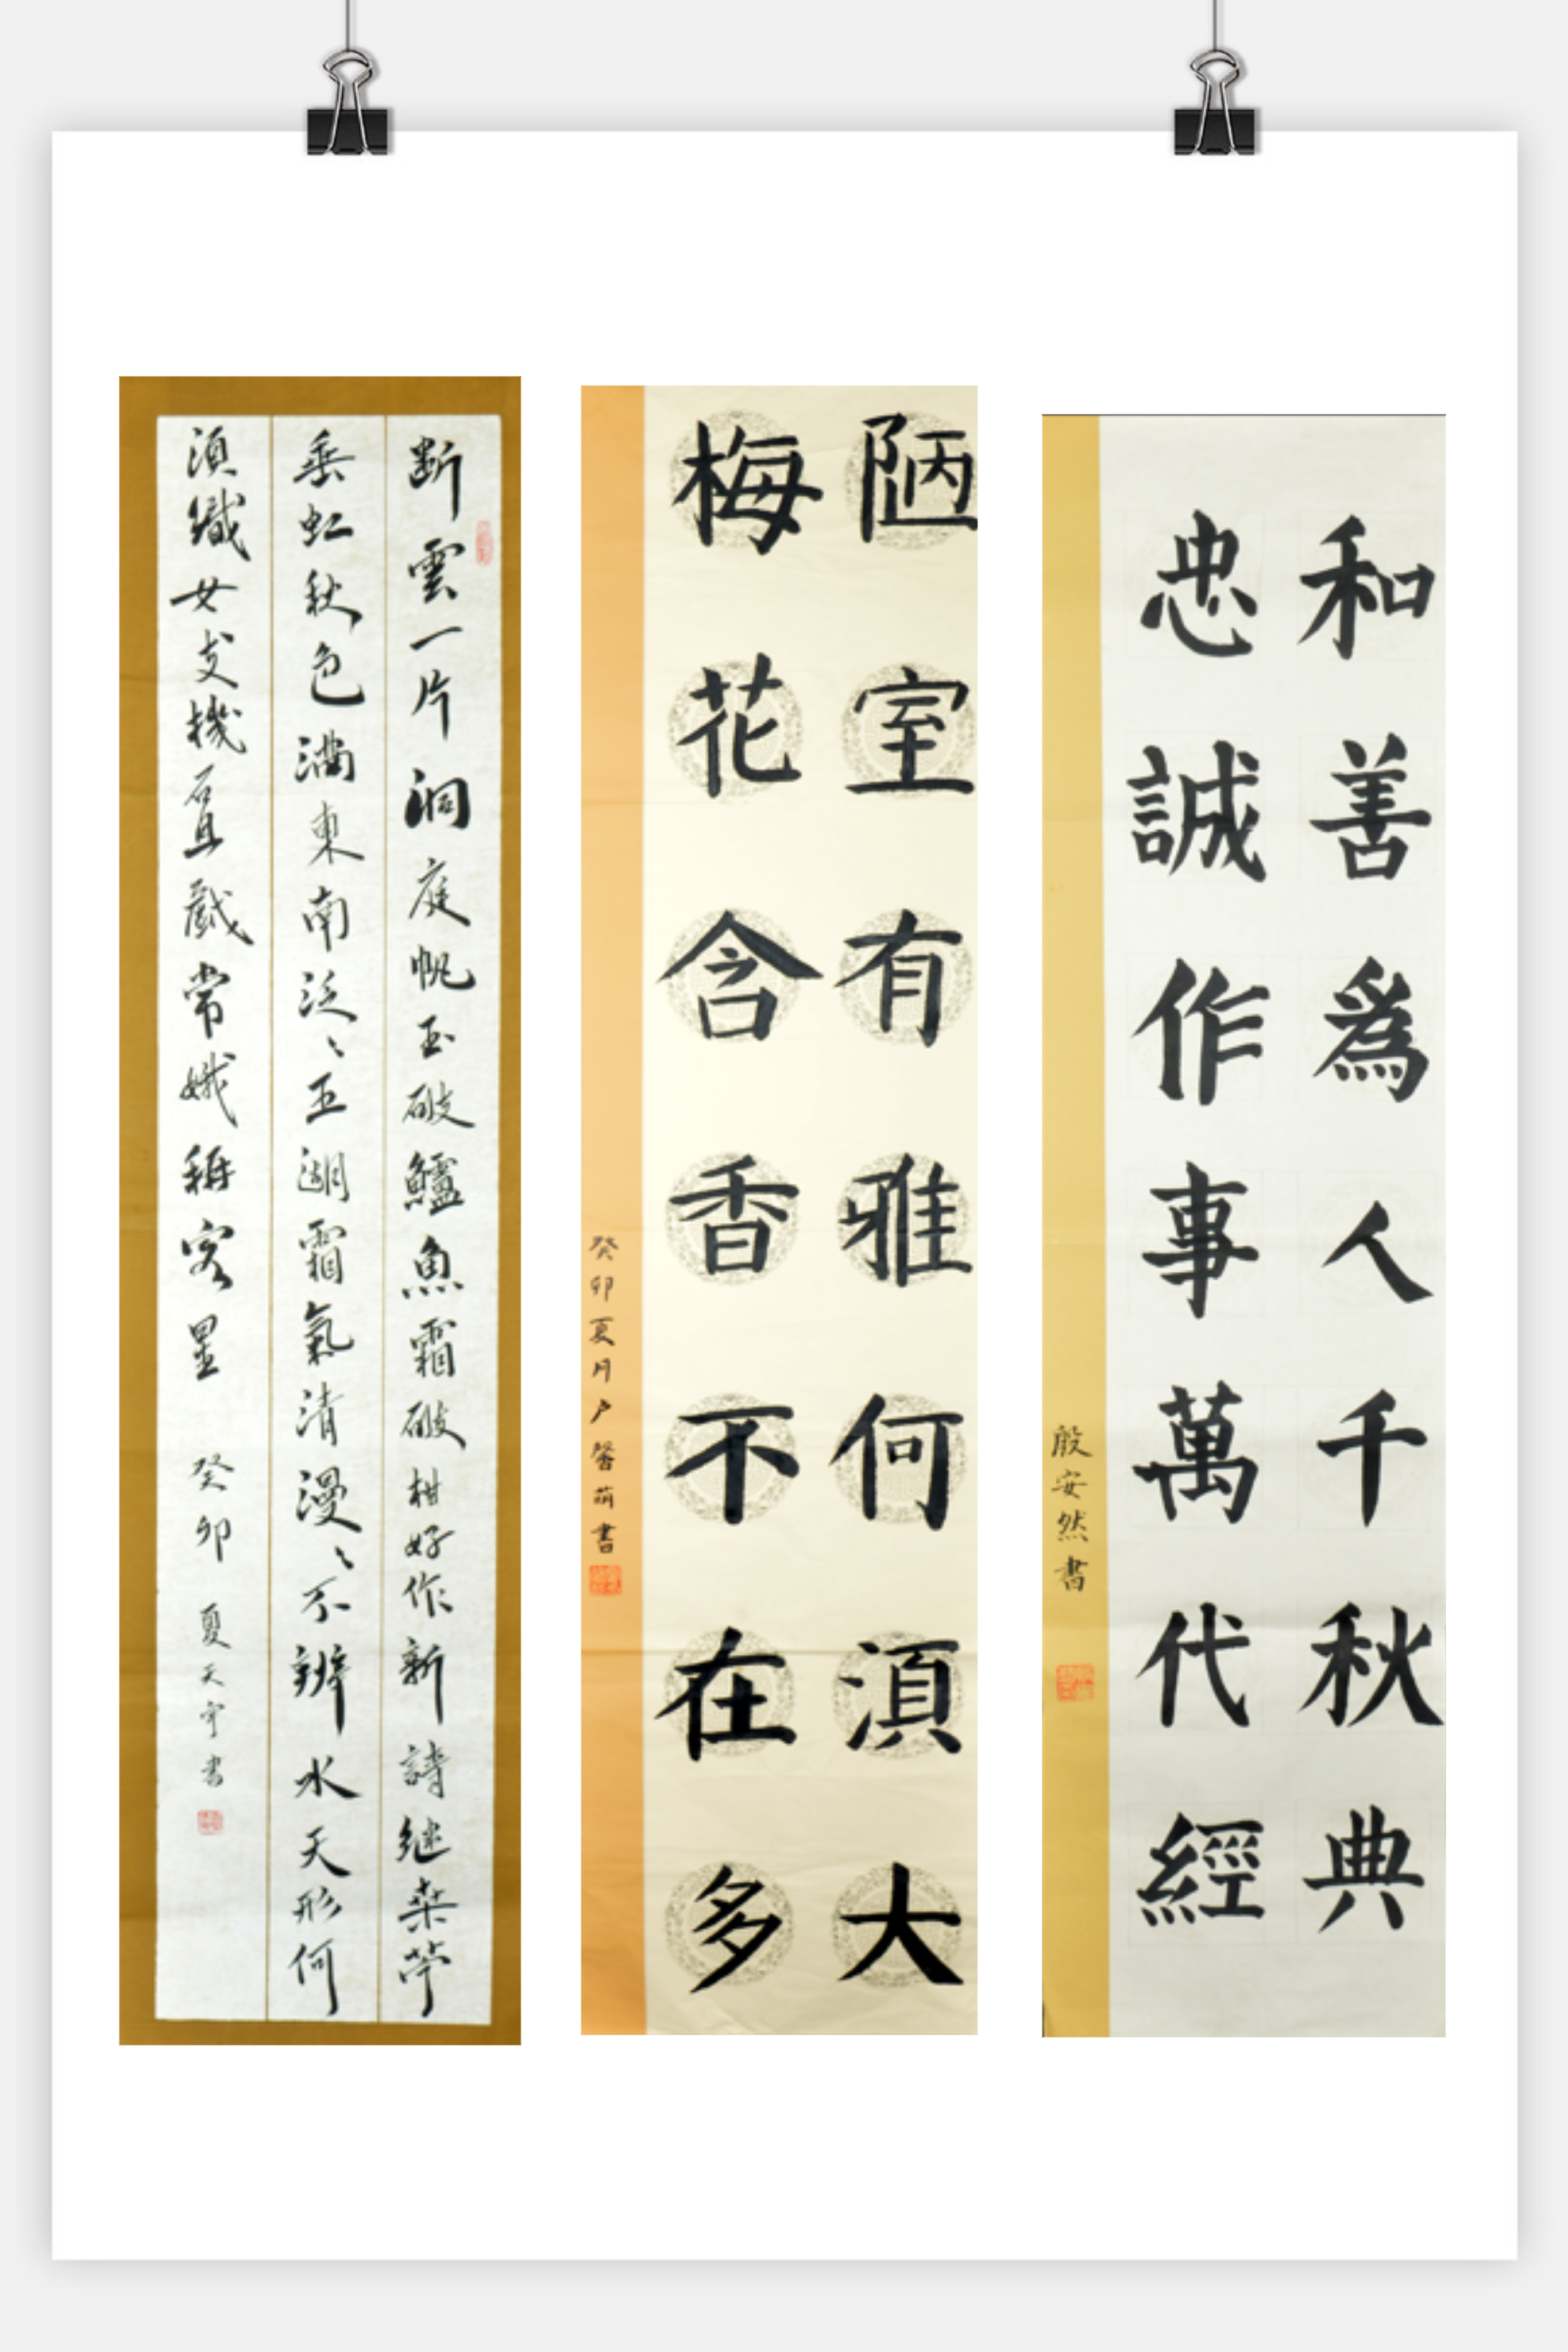 和善爲人千秋典
忠誠作事萬代經
殷安然書
陋室有雅何湏大
梅花含香不在多
癸卯夏月卢馨萌書
断雲一片洞庭帆玉破鱸魚霜破柑好作新詩继桒苧
垂虹秋色满東南泛〻五湖霜氣清漫〻不辨水天形何
湏織女支機石且戲常娥稱客星 癸卯 夏天宇書